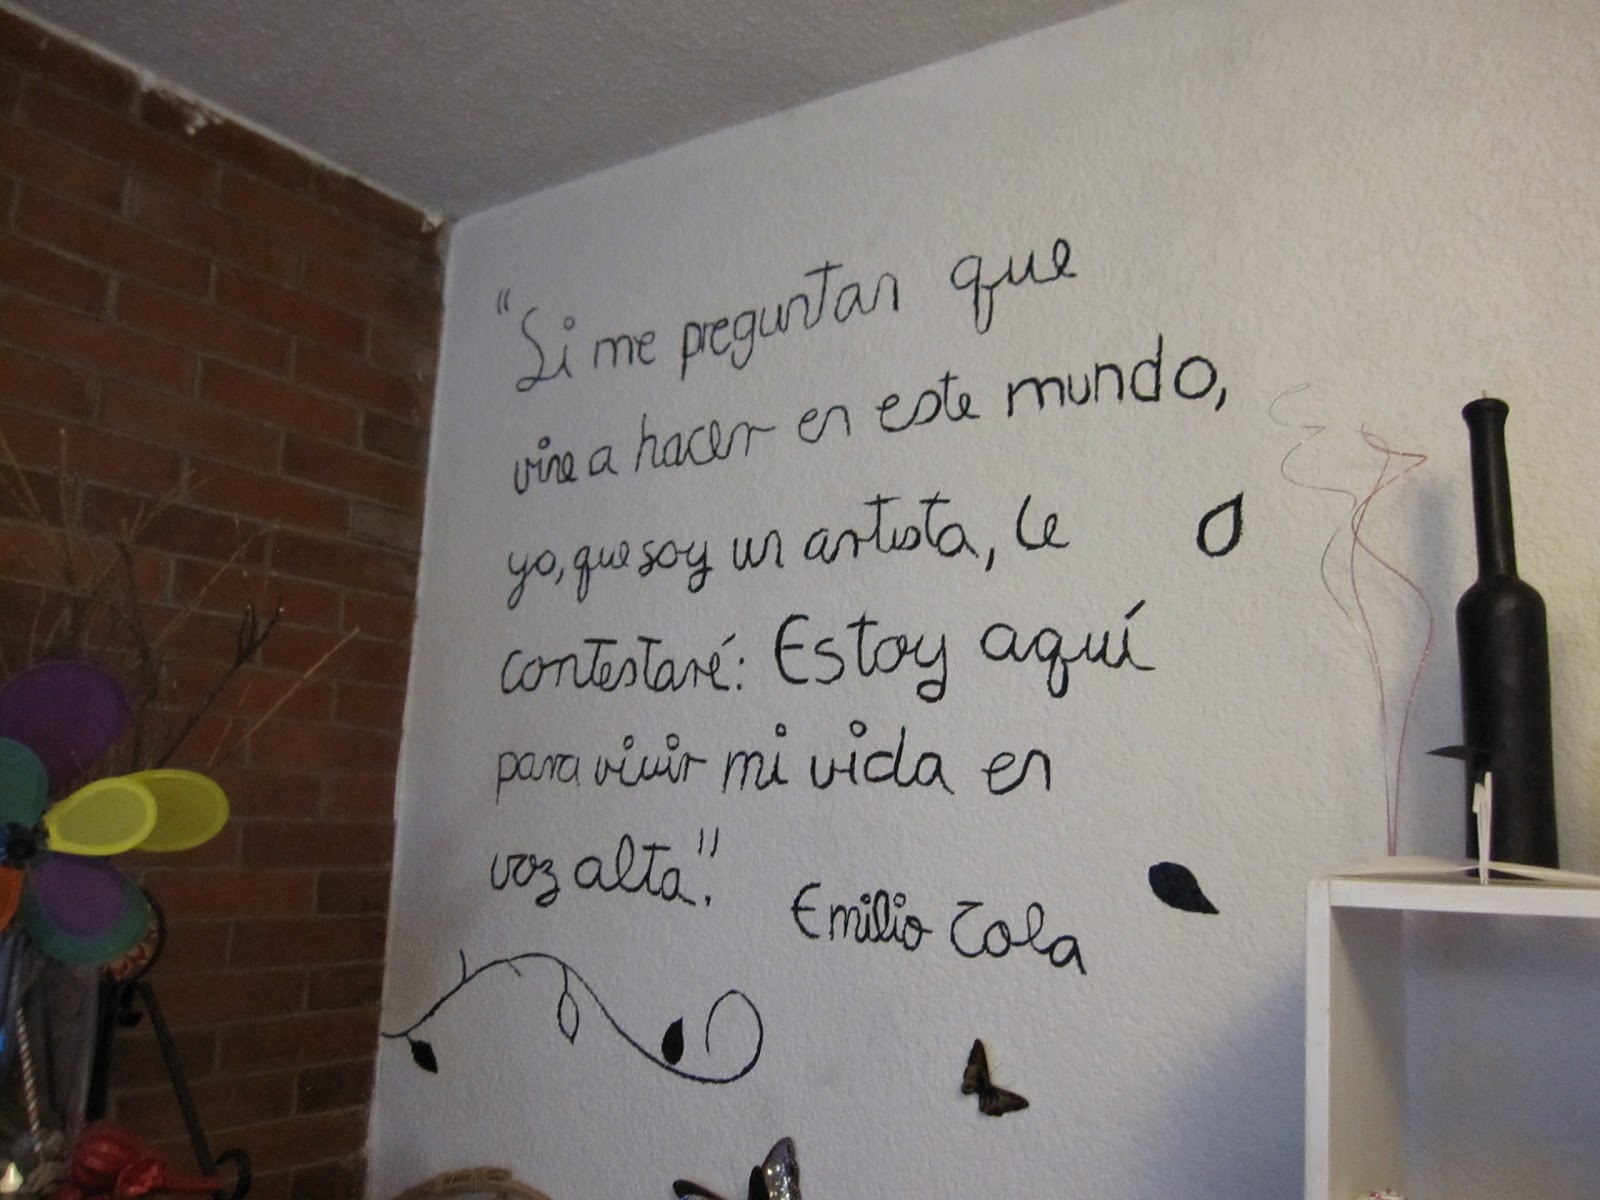 "Si me preguntan que
vine a hacer en este mundo,
yo, que soy un artista, le
contestaré: Estoy aquí
para vivir mi vida en
voz alta".
Emilio Zola